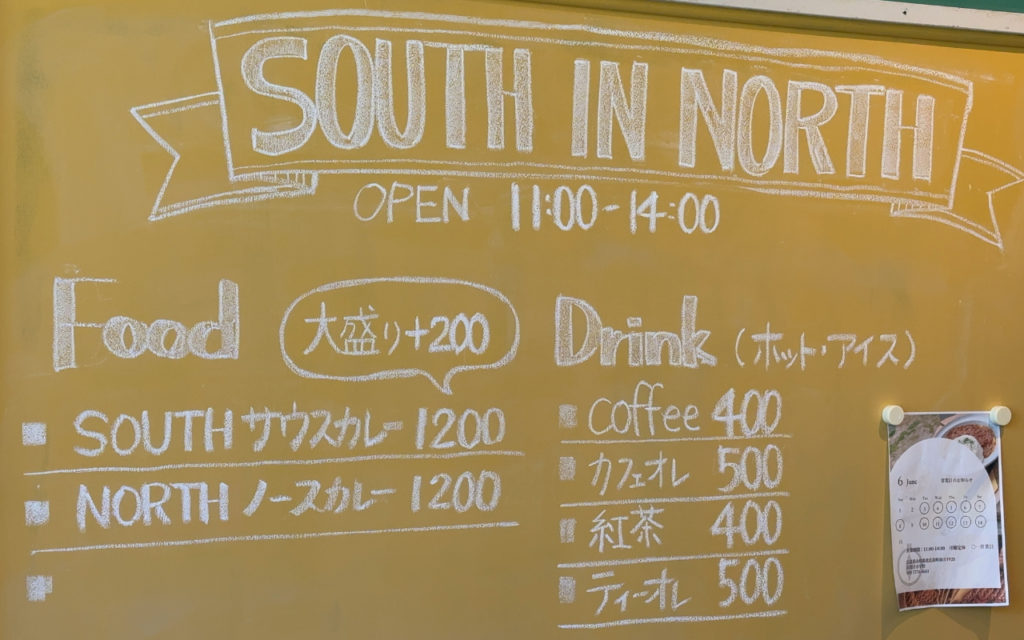 SOUTH IN NORTH
OPEN 11:00-14:00
Food
大盛り+200
SOUTH サウスカレー 1200
NORTH ノースカレー 1200
Drink (ホット・アイス)
Coffee 400
カフェオレ 500
紅茶 400
ティーオレ 500
6 June